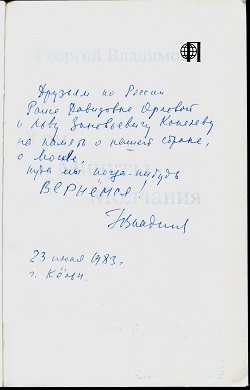 Георгий Владимо
Друзьям по России
Раисе Давыдовне Орловой
и Льву Зиновьевичу Копелеву
на память о нашей стране,
о Москве,
куда мы когда-нибудь
ВЕРНЁМСЯ!
молчания
23 июня 1983 г.
г. Кёльн.